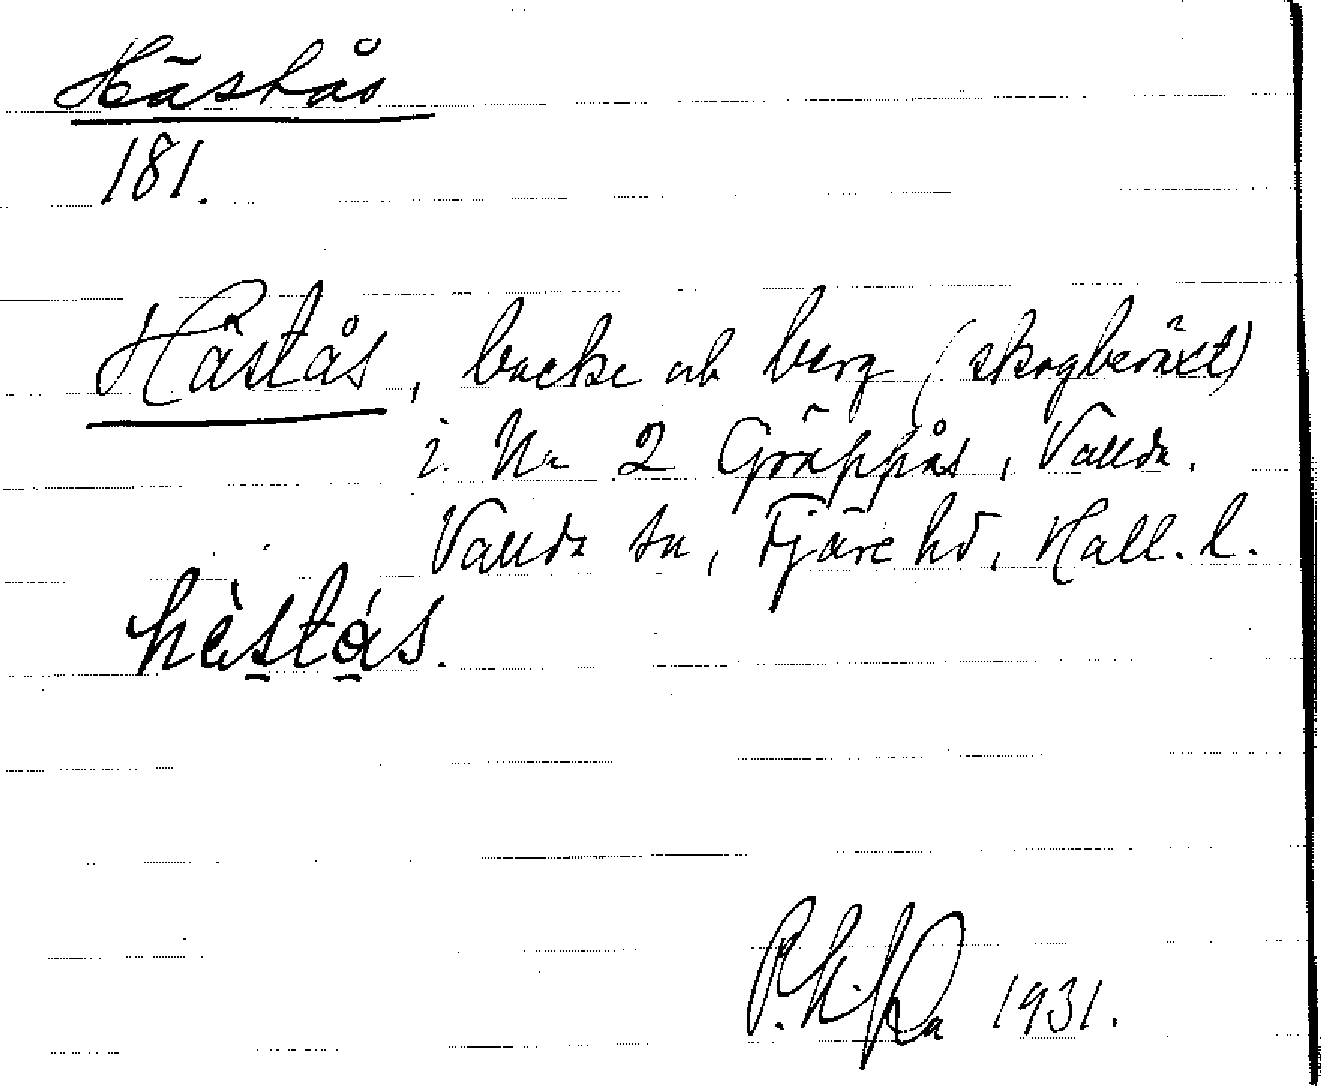 Hästås
181.
Hästås, backe och berg (skogbeväxt)
i Nr 2 Gräppås, Vallda.
Vallda sn, Fjäre hd, Hall. l.
hὲstås.
1931.